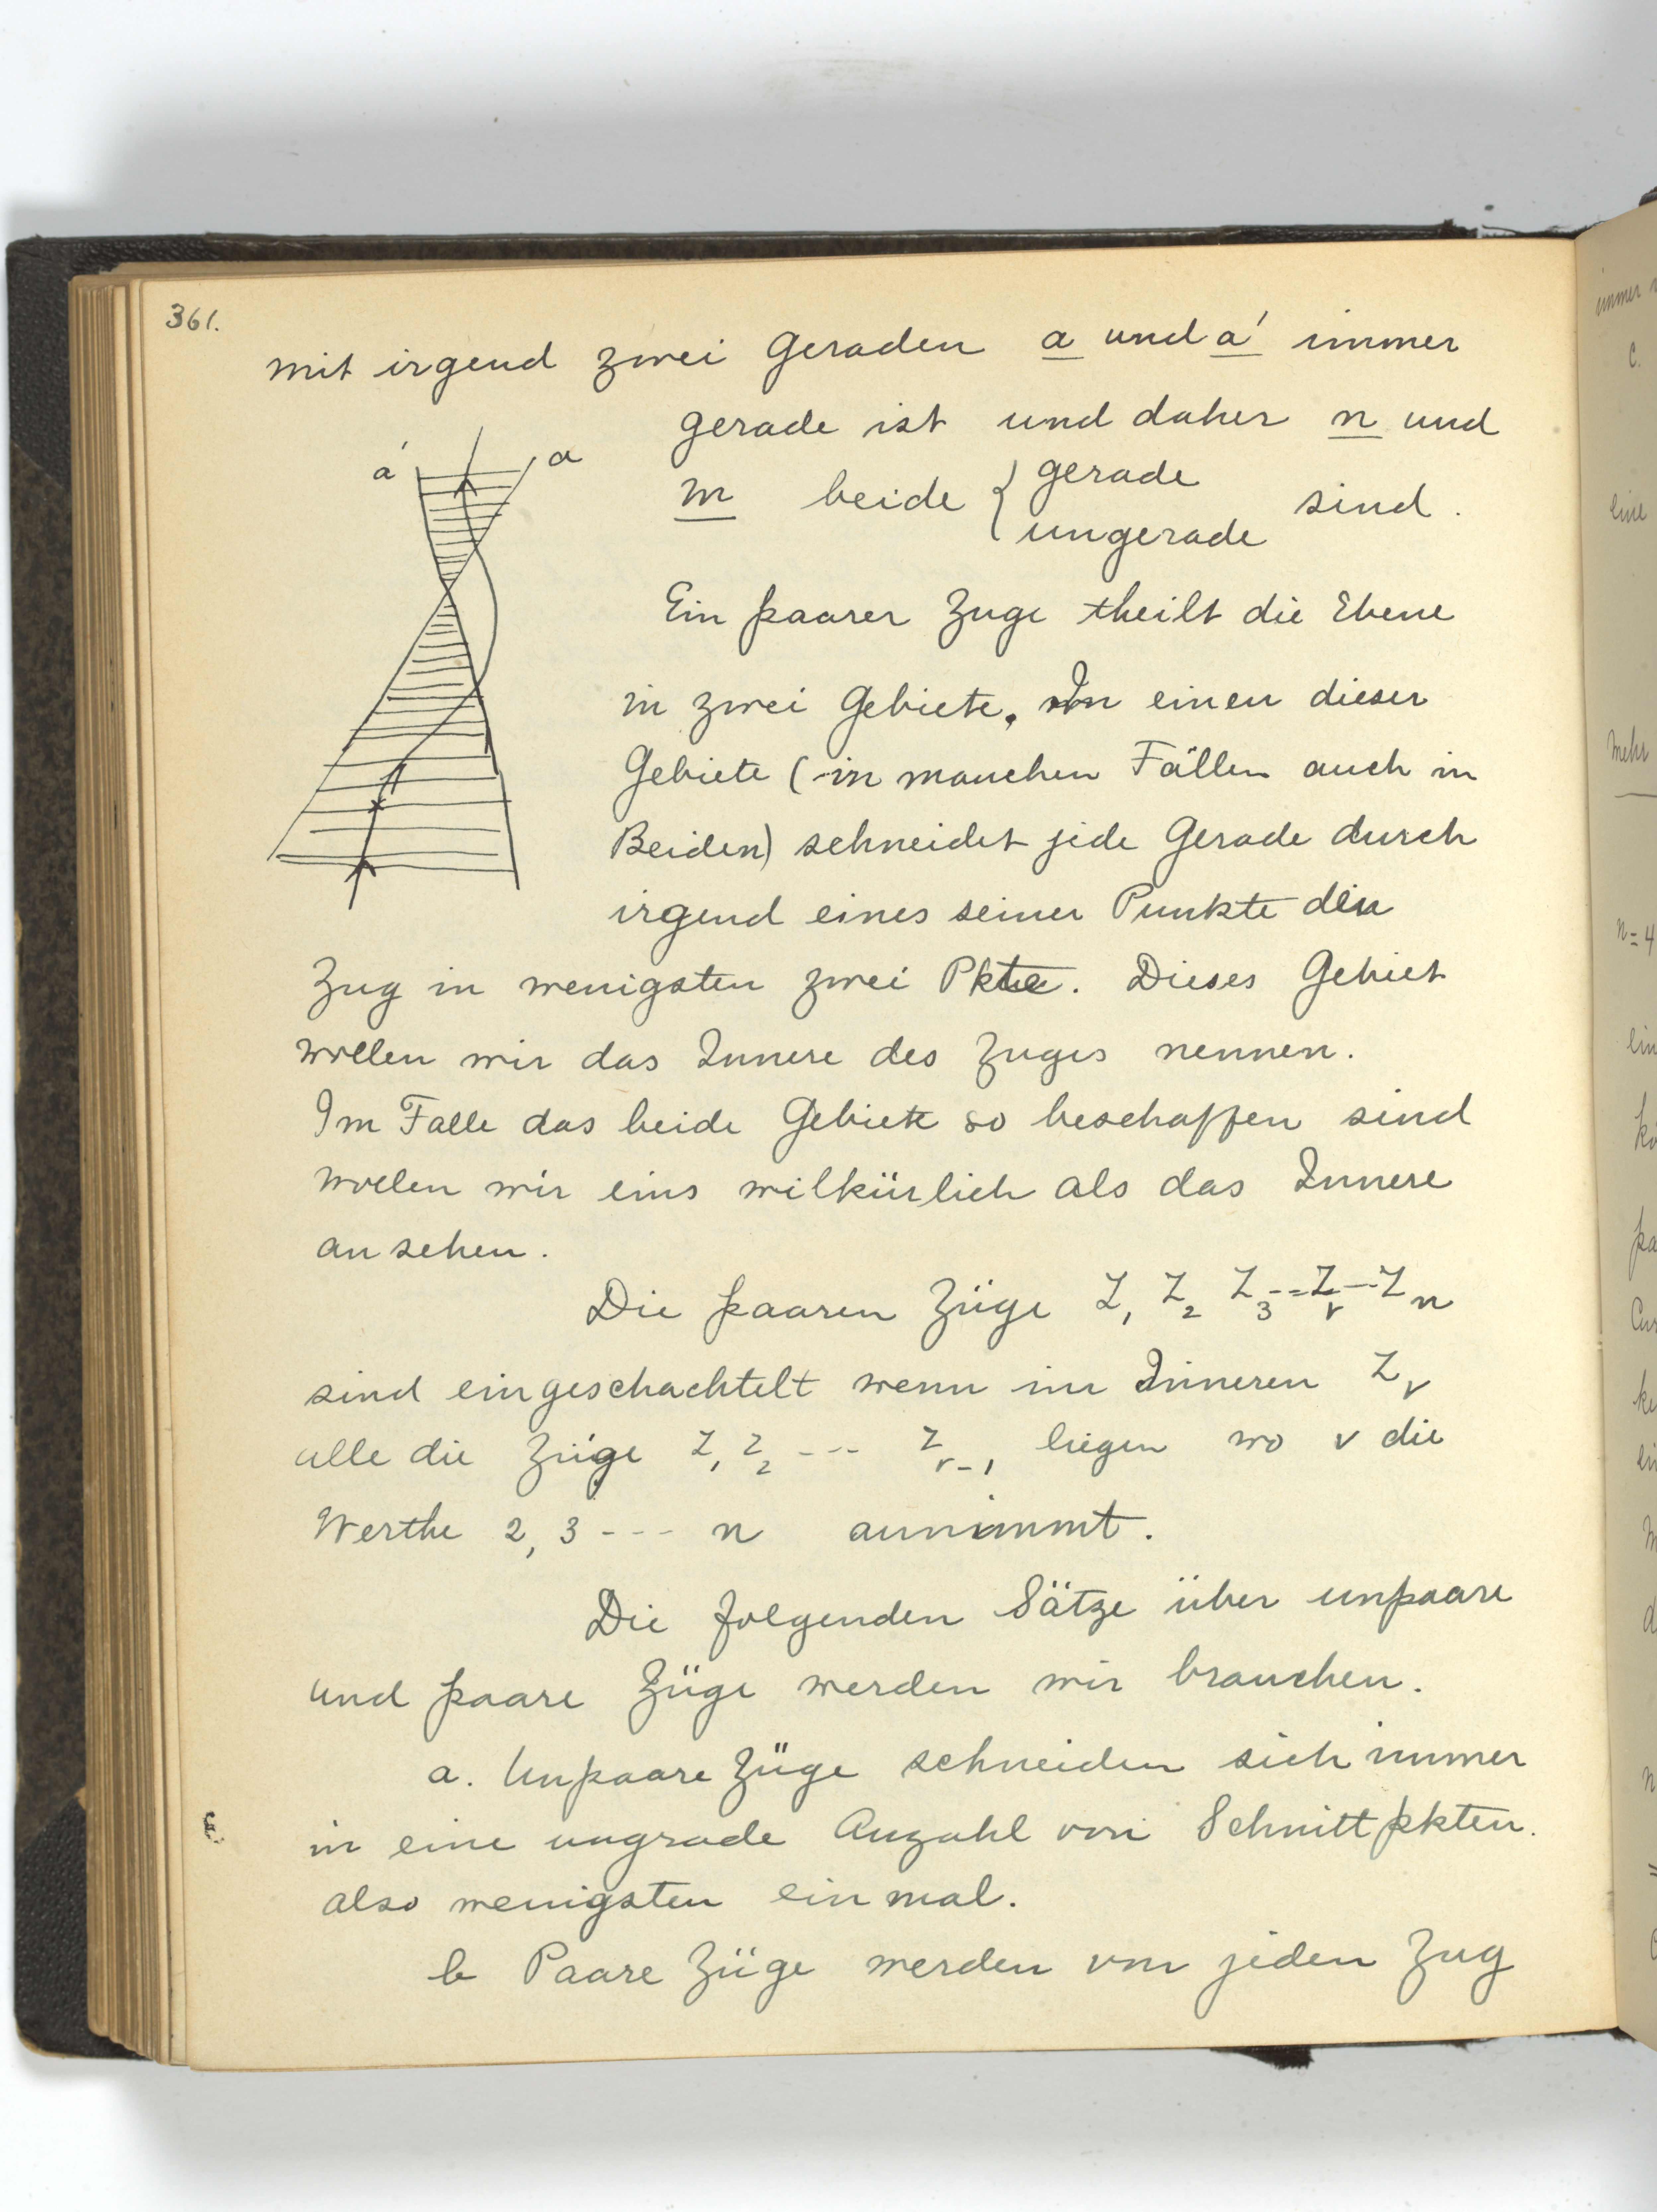 361.
mit irgend zwei Geraden a und a' immer
gerade ist und daher n und
a' a
m beide { gerade
ungerade sind.
Ein paarer Zuge theilt die Ebene
in zwei Gebiete. In einen dieser
Gebiete (in manchen Fällen auch in
Beiden) schneidet jede Gerade durch
irgend eines seiner Punkte den
Zug in wenigsten zwei Pkte. Dieses Gebiet
wollen wir das Innere des Zuges nennen.
Im Falle das beide Gebiete so beschaffen sind
wollen wir eins wilkürlich als das Innere
an sehen.
Die paaren Züge Z₁ Z₂ Z₃--Zᵥ--Zₙ
sind eingeschachtelt wenn im Inneren Zᵥ
alle die Züge Z₁ Z₂ --- Zᵥ₋₁ liegen wo v die
Werthe 2, 3 --- n annimmt.
Die folgenden Sätze über unpaare
und paare Züge werden wir brauchen.
a. Unpaare Züge schneiden sich immer
in eine ungrade Anzahl von Schnittpkten.
also wenigsten ein mal.
b Paare Züge werden von jeden Zug
immer
c.
eine
mehr
n=4